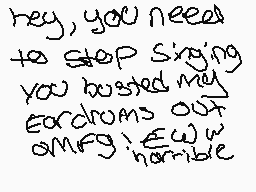 hey, you need
to stop singing
you busted my
eardrums out
omfg! Eww
horrible